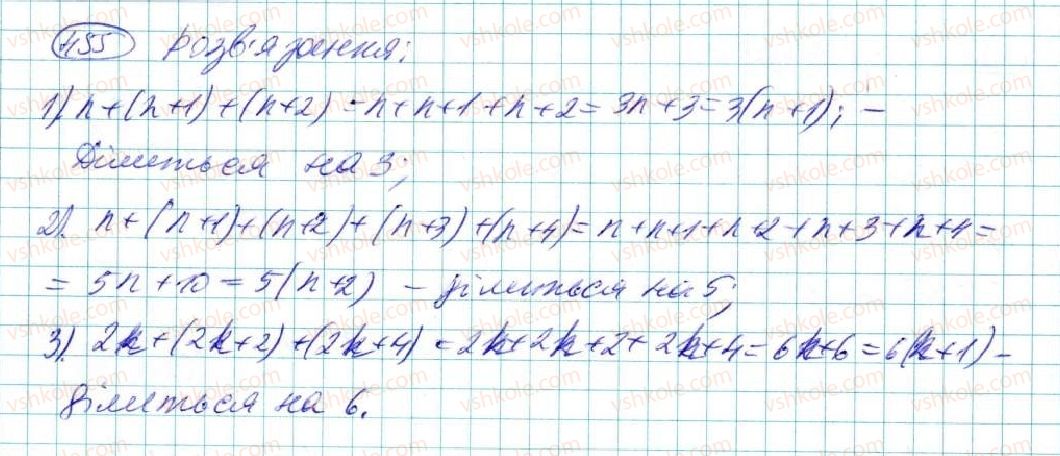 455 Розв'язання:
1) n+(n+1)+(n+2) = n+n+1+n+2 = 3n+3 = 3(n+1); –
Ділиться на 3;
2). n+(n+1)+(n+2)+(n+3)+(n+4) = n+n+1+n+2+n+3+n+4 =
= 5n+10 = 5(n+2) – ділиться на 5;
3). 2k+(2k+2)+(2k+4) = 2k+2k+2+2k+4 = 6k+6 = 6(k+1) –
ділиться на 6.